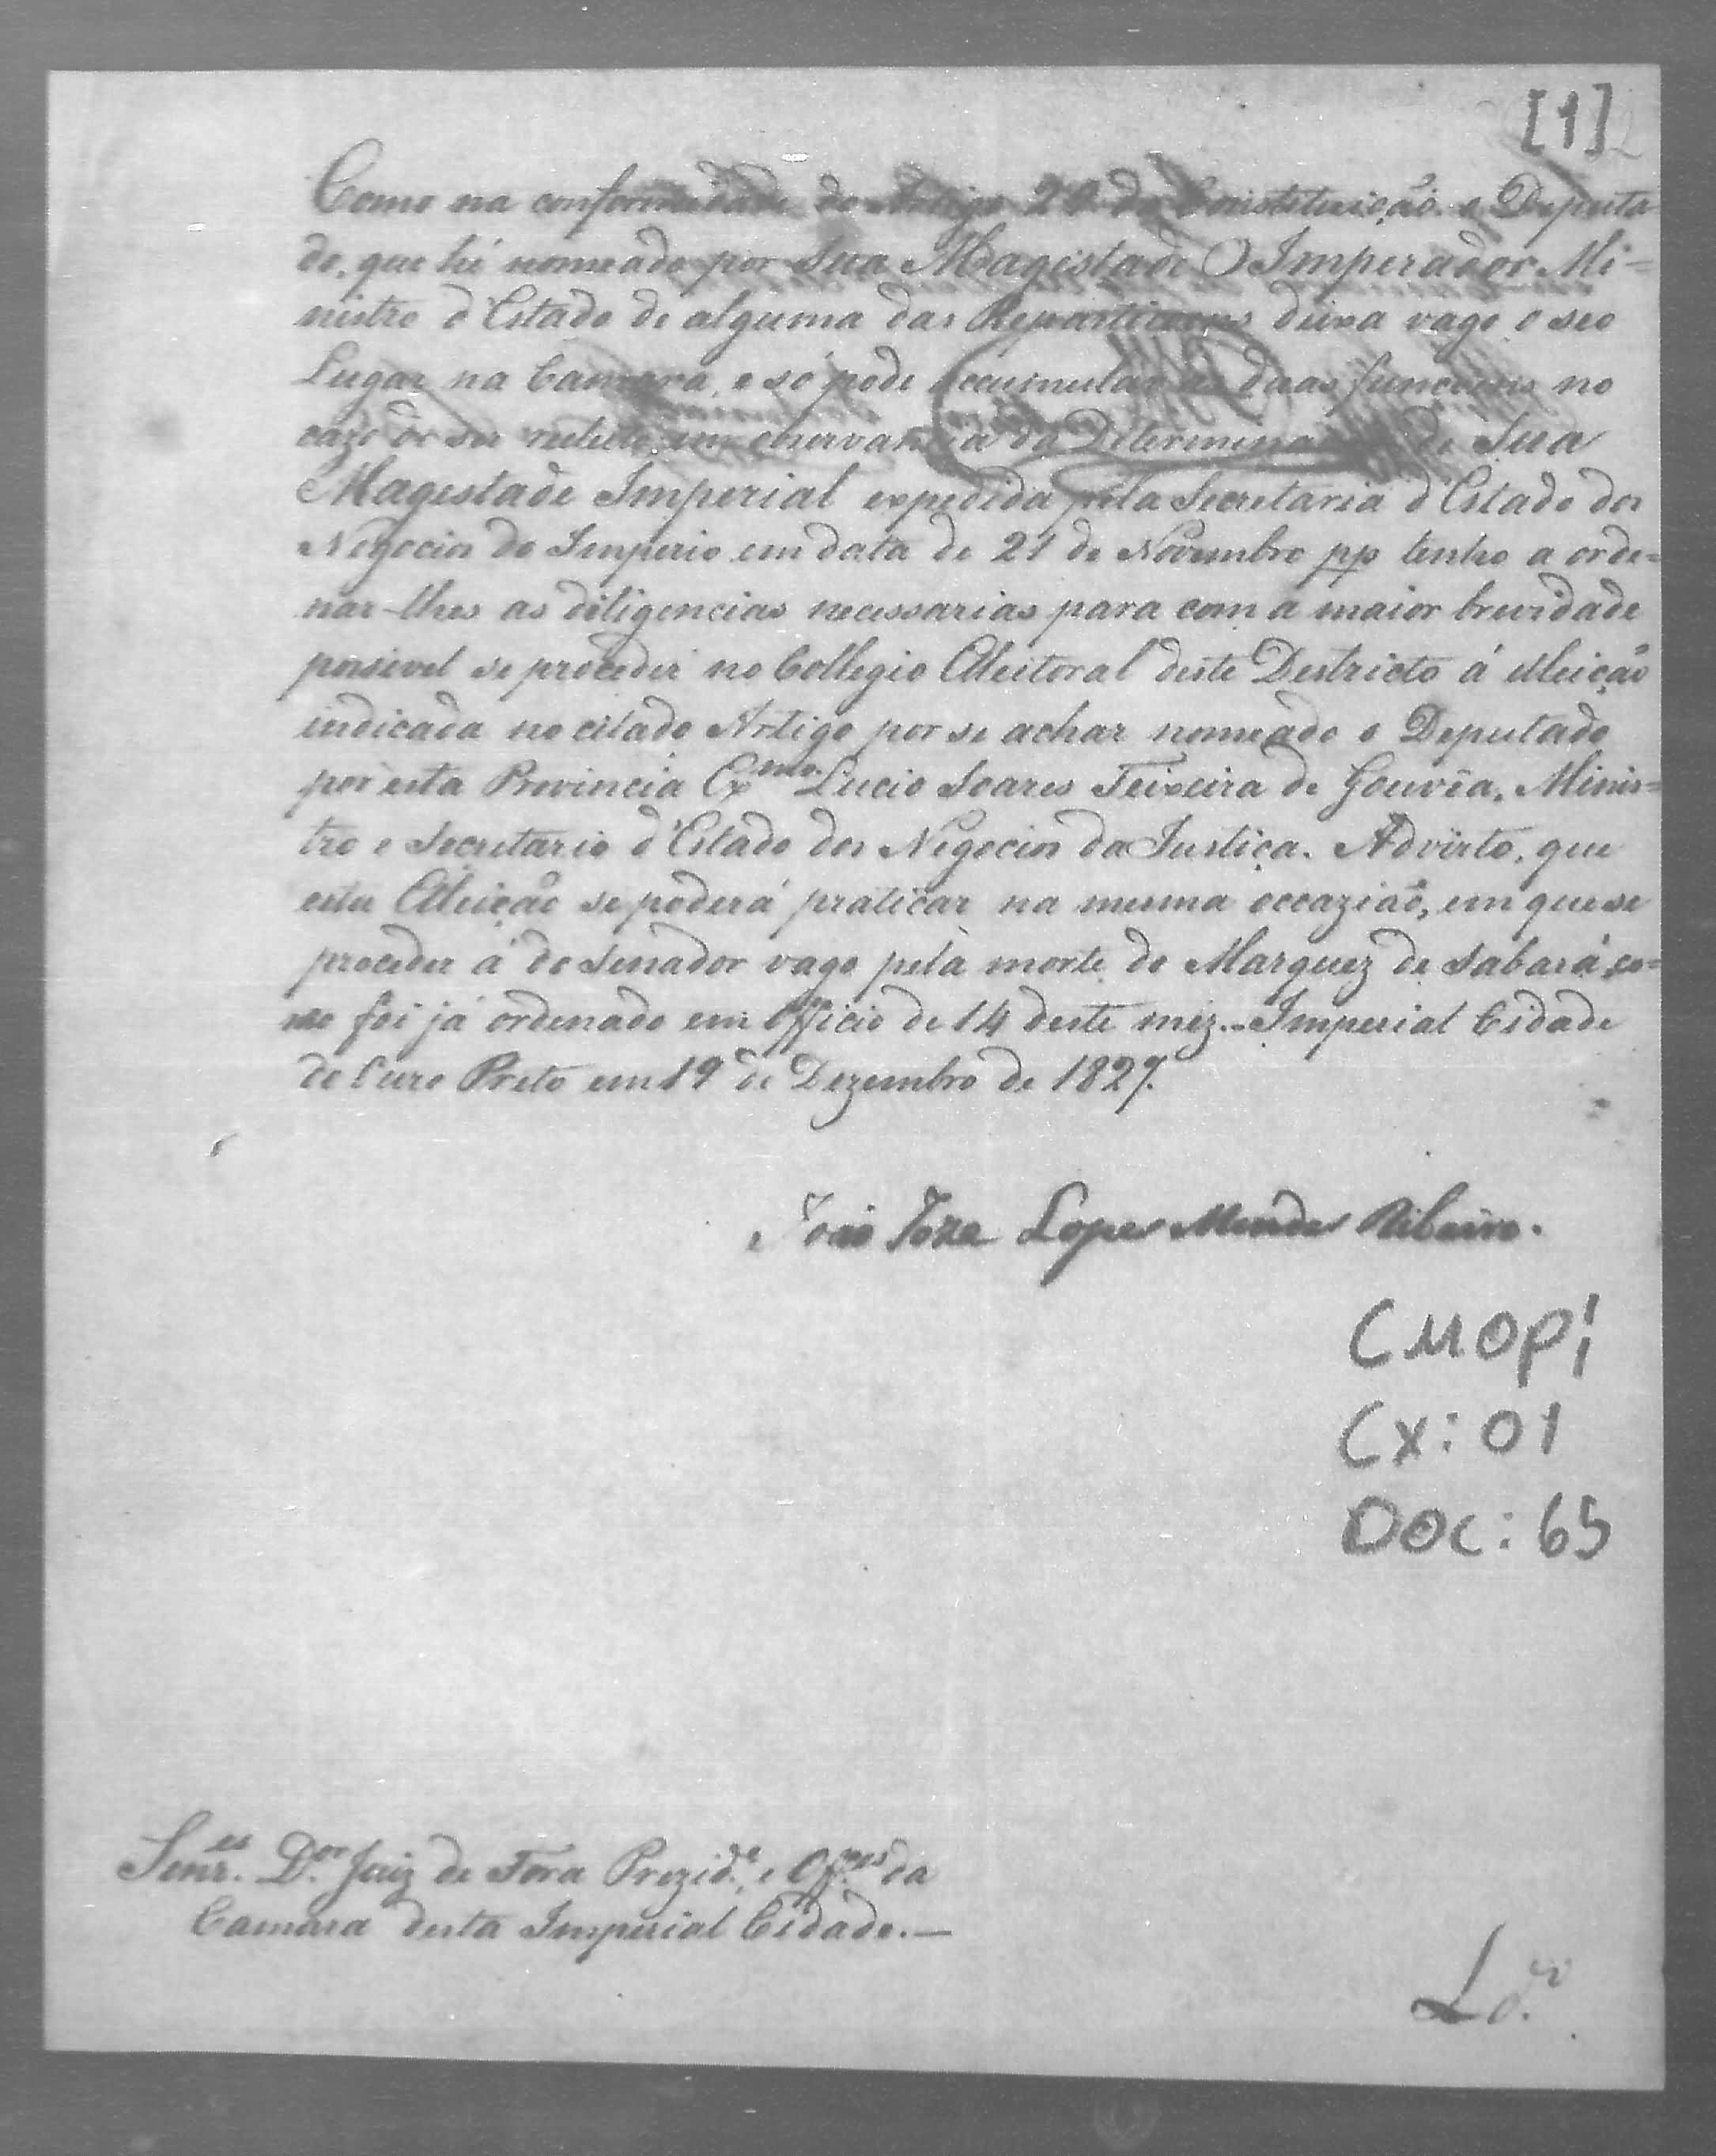 [1]
Como na conformidade do Artigo 29 da Constituição o Deputa
do, que hé nomeado por Sua Magestade O Imperador Mi-
nistro d'Estado de alguma das Repartiçoens deixa vago o seo
Lugar na Camara, e só pode accumular as duas funcçoens no
cazo de ser reeleito em observancia da Determinação de Sua
Magestade Imperial expedida pela Secretaria d'Estado dos
Negocios do Imperio em data de 21 de Novembro pp tenho a orde=
nar-lhes as diligencias necessarias para com a maior brevidade
possivel se proceder no Collegio Elleitoral deste Destricto á elleição
indicada no citado Artigo por se achar nomeado o Deputado
por esta Provincia Exmo. Lucio Soares Teixeira de Gouvêa, Minis=
tro e Secretario d'Estado dos Negocios da Justiça. Advirto, que
esta Elleição se poderá praticar na mesma occazião, em que se
proceder á do Senador vago pela morte do Marquez de Sabará, co=
mo foi já ordenado em Officio de 14 deste mez.. Imperial Cidade
do Ouro Preto em 19 de Dezembro de 1827.
João Joze Lopes Mendes Ribeiro.
CMOP;
Cx: 01
DOC: 65
Senres. Dor. Juiz de Fora Prezide., e Offes. da
Camara desta Imperial Cidade.—